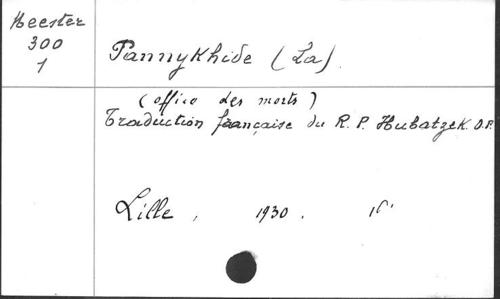 Heester
300
1
Pannykhide (La).
(office des morts)
Traduction française du R. P. Hubatzek. O.P.
Lille, 1930.